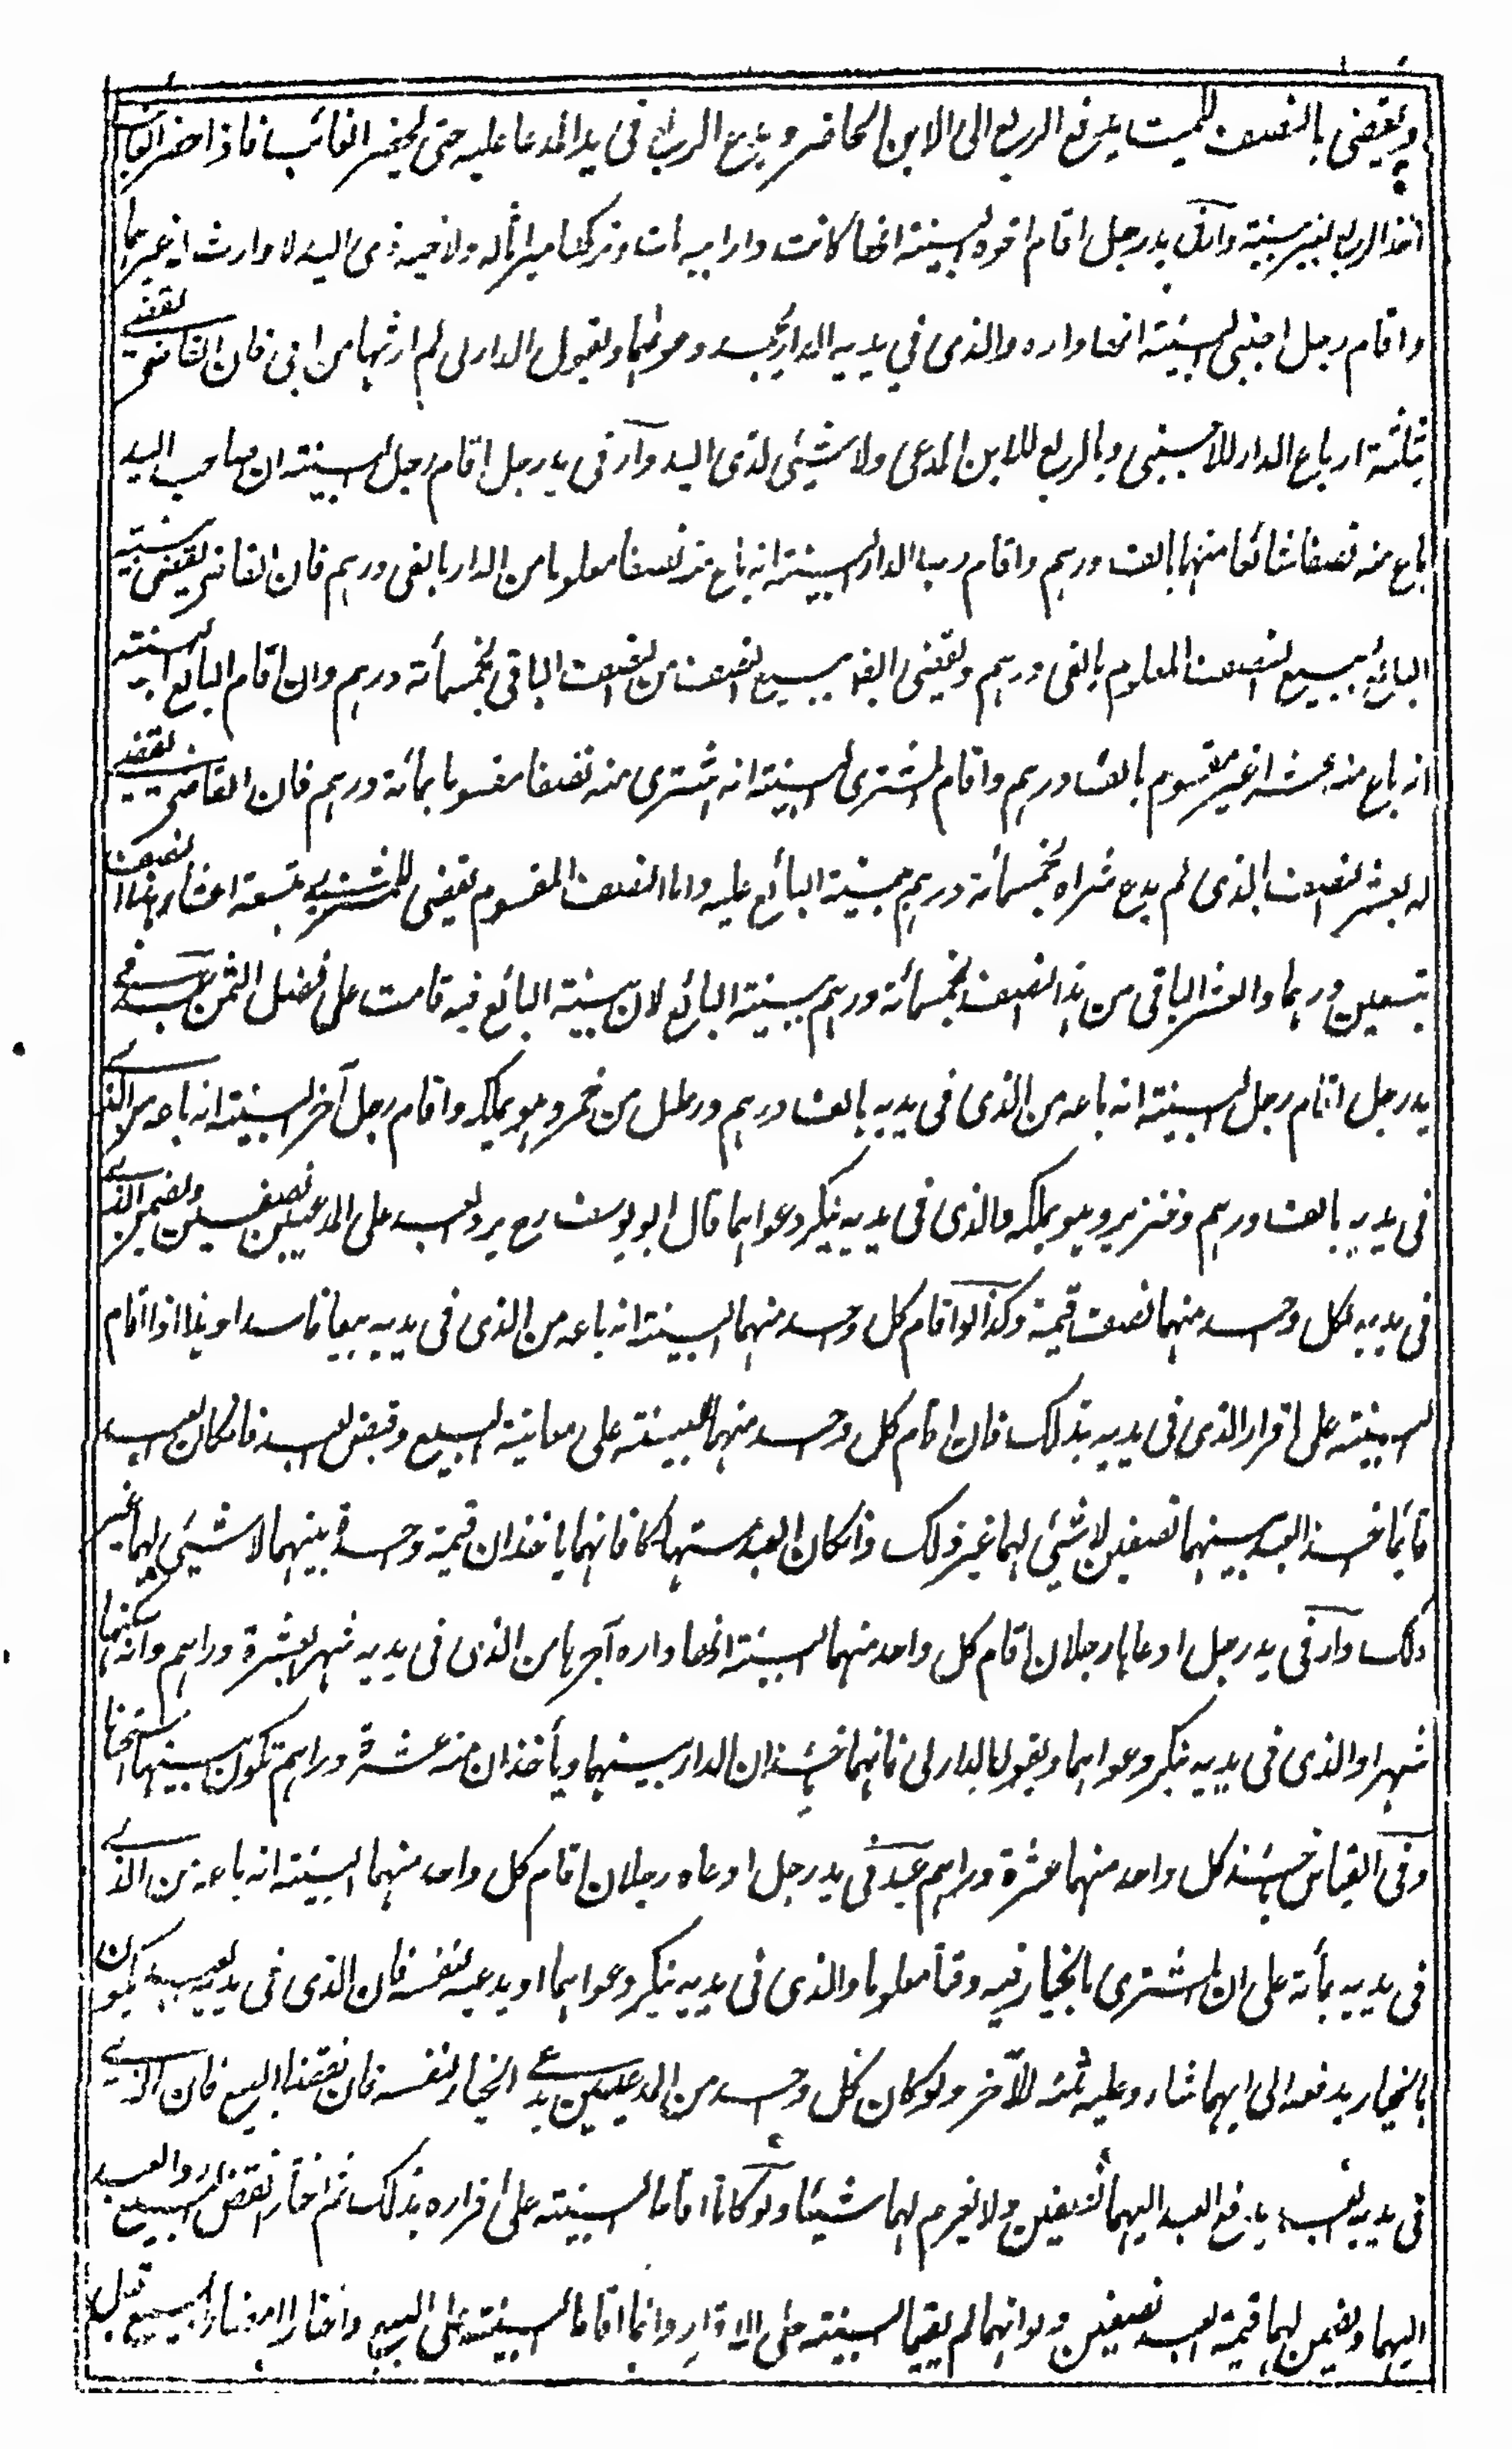 ويقضى بالنصف للميت يدفع الربع الى الابن الحاضر و يدع الربع فى يد المدعا عليه حتى يحضر الغائب فاذا حضر الغائب
اخذ الربع بغير بينة دار فى يد رجل اقام اخوه البينة انها كانت دار ابيه مات وتركها ميراثا له ولاخيه ذى اليد لا وارث له غيرهما
واقام رجل اجنبى البينة انها داره والذى فى يديه الدار يجحد دعواهما ويقول الدار لى لم ارثها من ابى فان القاضى يقضى
بثلثة ارباع الدار للاجنبى وبالربع للابن المدعى ولا شيئ لذى اليد دار فى يد رجل اقام رجل البينة ان صاحب اليد
باع منه نصفا شائعا منها بالف درهم واقام رب الدار البينة انه باع منه نصفا معلوما من الدار بالفى درهم فان القاضى يقضى ببينة
البائع ببيع النصف المعلوم بالفى درهم ويقضى ايضا ببيع النصف من النصف الباقى بخمسمائة درهم وان اقام البائع البينة
انه باع منه عشرا غير مقسوم بالف درهم واقام المشترى البينة انه اشترى منه نصفا مقسوما بمائة درهم فان القاضى يقضى
له بعشر النصف الذى لم يدع شراه بخمسمائة درهم ببينة البائع عليه واما النصف المقسوم يقضى للمشترى بتسعة اعشار هذا النصف
بتسعين درهما والعشر الباقى من هذا النصف بخمسمائة درهم ببينة البائع لان بينة البائع فيه قامت على فضل الثمن عبد فى
يد رجل اقام رجل البينة انه باعه من الذى فى يديه بالف درهم ورطل من خمر وهو يملكه واقام رجل آخر البينة انه باعه من الذى
فى يديه بالف درهم وخنزير وهو يملكه والذى فى يديه ينكر دعواهما قال ابو يوسف رح يرد العبد على المدعيين نصفين ويضمن الذى
فى يديه لكل واحد منهما نصف قيمة وكذا لو اقام كل واحد منهما البينة انه باعه من الذى فى يديه بيعا فاسدا وهذا اذا اقام
البينة على اقرار الذى فى يديه بذلك فان اقام كل واحد منهما البينة على معاينة البيع وقبض العبد فان كان العبد
قائما اخذ العبد بينهما نصفين لا شيئ لهما غير ذلك وان كان العبد مستهلكا فانهما ياخذان قيمة واحدة بينهما لا شيئ لهما غير
ذلك دار فى يد رجل ادعاها رجلان اقام كل واحد منهما البينة انها داره آجرها من الذى فى يديه شهرا بعشرة دراهم وانه سكنها
شهرا والذى فى يديه ينكر دعواهما ويقول الدار لى فانهما ياخذان الدار بينهما ويأخذان منه عشرة دراهم تكون بينهما استحسانا
وفى القياس يأخذ كل واحد منهما عشرة دراهم عبد فى يد رجل ادعاه رجلان اقام كل واحد منهما البينة انه باعه من الذى
فى يديه بمأة على ان المشترى بالخيار فيه وقتا معلوما والذى فى يديه ينكر دعواهما او يدعيه لنفسه فان الذى فى يديه العبد يكون
بالخيار يدفعه الى ايهما شاء وعليه ثمنه للآخر ولو كان كل واحد من المدعيين يدعى الخيار لنفسه فان نقضا البيع فان الذى
فى يديه العبد يدفع العبد اليهما نصفين ولا يغرم لهما شيئا ولو كانا اقاما البينة على اقراره بذلك ثم اختارا نقض البيع رد العبد
اليهما ويضمن لهما قيمة العبد نصفين ولو انهما لم يقيما البينة على الاقرار وانما اقاما البينة على البيع واختارا امضاء البيع قبل